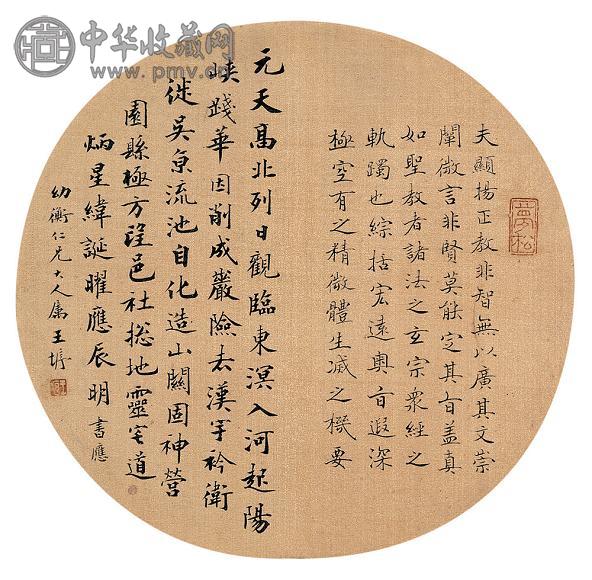 中华收藏网
www.pmv.cn
夢松
夫顯揚正教非智無以廣其文崇
闡微言非賢莫能定其旨盖真
如聖教者諸法之玄宗衆經之
軌躅也綜括宏遠奥旨遐深
極空有之精微體生滅之機要
元天高北列日觀臨東溟入河起陽
峽踐華因削成巖險去漢宇衿衛
徙吳京流池自化造山關固神營
園縣極方望邑社揔地靈宅道
炳星緯誕曜應辰明書應
幼衡仁兄大人属王